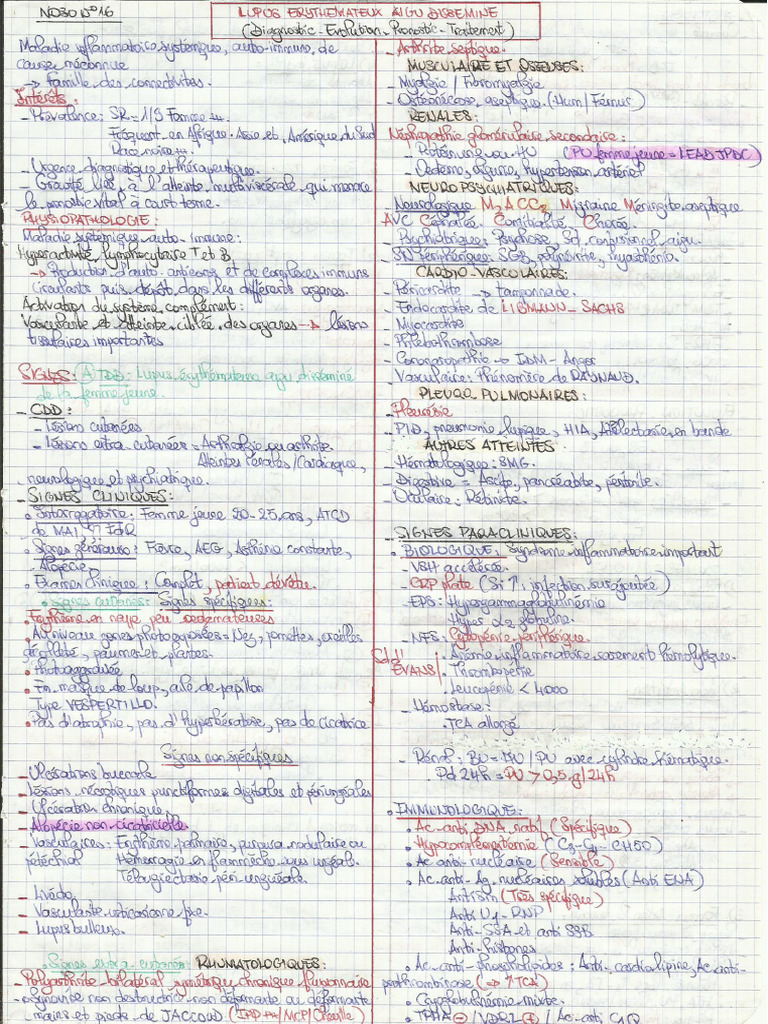 NOSO N°16
LUPUS ERYTHEMATEUX AIGU DISSEMINE
(Diagnostic - Evolution - Pronostic - Traitement)
Maladie inflammatoire systémique, auto-immune, de
cause méconnue
→ Famille des connectivites.
Intérêts:
- Prévalence: SR = 1/9 Femme ++.
Fréquent en Afrique. Asie et Amérique du Sud
Race noire ++.
- Urgence diagnostique et thérapeutique.
- Gravité liée à l'atteinte multiviscérale qui menace
le pronostic vital à court terme.
PHYSIOPATHOLOGIE:
Maladie systémique auto-immune:
Hyperactivité lymphocytaire T et B
→ Production d'auto anticorps et de complexes immuns
circulants puis dépôt dans les différents organes.
Activation du système complément:
Vascularite et atteinte ciblée des organes → lésions
tissulaires importantes
SIGNES: A TDD: Lupus érythémateux aigu disséminé
de la femme jeune.
- CDD:
- Lésions cutanées
- Lésions extra cutanées = Arthralgie ou arthrite
Atteintes rénales / Cardiaque,
neurologique et psychiatrique.
- SIGNES CLINIQUES:
• Interrogatoire: Femme jeune 20-25 ans, ATCD
de MAI
• Signes généraux: Fièvre, AEG, Asthénie constante,
Alopécie
• Examen clinique: Complet, patient dévêtu.
• Signes cutanés: Signes spécifiques:
• Erythème en nappe peu oedémateuses
• Au niveau zones photoexposées = Nez, pommettes, oreilles
décolleté, paumes et plantes.
• Photoaggravée
• En masque de loup, aile de papillon
Type VESPERTILLO.
• Pas d'atrophie, pas d'hyperkératose, pas de cicatrice
Signes non spécifiques
- Ulcérations buccale
- Lésions nécrotiques punctiformes digitales et périunguéales
- Ulcération chronique
- Alopécie non cicatricielle
- Vasculaires: Erythème palmaire, purpura nodulaire ou
pétéchial Hémorragie en flammèche sous unguéal.
Télangiectasie péri-unguéale.
- Livédo
- Vascularite urticarienne fixe.
- Lupus bulleux.
Signes extra-cutanés RHUMATOLOGIQUES:
- Polyarthrite bilatéral symétrique chronique fluxionnaire
• Synovite non destructrice non déformante ou déformante
mains et pieds de JACCOUD (IPP ++/MCP/Cheville)
- Arthrite septique.
MUSCULAIRE ET OSSEUSES:
- Myalgie / Fibromyalgie
- Ostéonécrose aseptique. (Hum/Fémur)
RENALES:
Néphropathie glomérulaire secondaire:
- Protéinurie ou HU (PU femme jeune = LEAD JPDC)
- Oedème, oligurie, hypertension artériel
NEUROPSYCHIATRIQUES:
- Neurologique M2 A CC2 Migraine Méningite aseptique
AVC Céphalée. Comitialité Chorée.
- Psychiatrique: Psychose, Sd confusionnel aigu.
- SN Périphérique: SGB, polynévrite, myasthénie.
CARDIO-VASCULAIRES:
- Péricardite → tamponnade.
- Endocardite de LIBMANN-SACHS
- Myocardite
- Phlébothrombose
- Coronaropathie → IDM - Angor
- Vasculaire: Phénomène de RAYNAUD.
PLEURO PULMONAIRES:
- Pleurésie
- PID, pneumonie lupique, HIA, Atélectasie en bande
AUTRES ATTEINTES
- Hématologique: SMG.
- Digestive = Ascite, pancréatite, péritonite.
- Oculaire: Rétinite.
SIGNES PARACLINIQUES:
• BIOLOGIQUE: Syndrome inflammatoire important
- VSH accélérée.
- CRP plate (Si ↑, infection surajoutée)
- EPS: Hypergammaglobulinémie
Hyper α2 globuline.
- NFS: Cytopénie périphérique.
Sd !! EVANS • Anémie inflammatoire rarement hémolytique.
• Thrombopénie
• Leucopénie < 4000
- Hémostase:
• TCA allongé
- Rénal: BU = HU / PU avec cylindre hématique.
Pd 24h = PU > 0,5 g/24h
• IMMUNOLOGIQUE:
• Ac-anti DNA natif (Spécifique)
• Hypocomplémentémie (C3-C4-CH50)
• Ac anti-nucléaire (Sensible)
• Ac-anti-Ag nucléaires solubles (Anti ENA)
Anti Sm (Très spécifique)
Anti U1-RNP
Anti-SSA et anti SSB
Anti-histones
• Ac-anti-phospholipides: Anti-cardiolipine, Ac anti-
prothrombinase (→ ↑TCA)
• Cryoglobulinémie mixte.
• TPHA ⊖ / VDRL ⊕ / Ac-anti C1Q